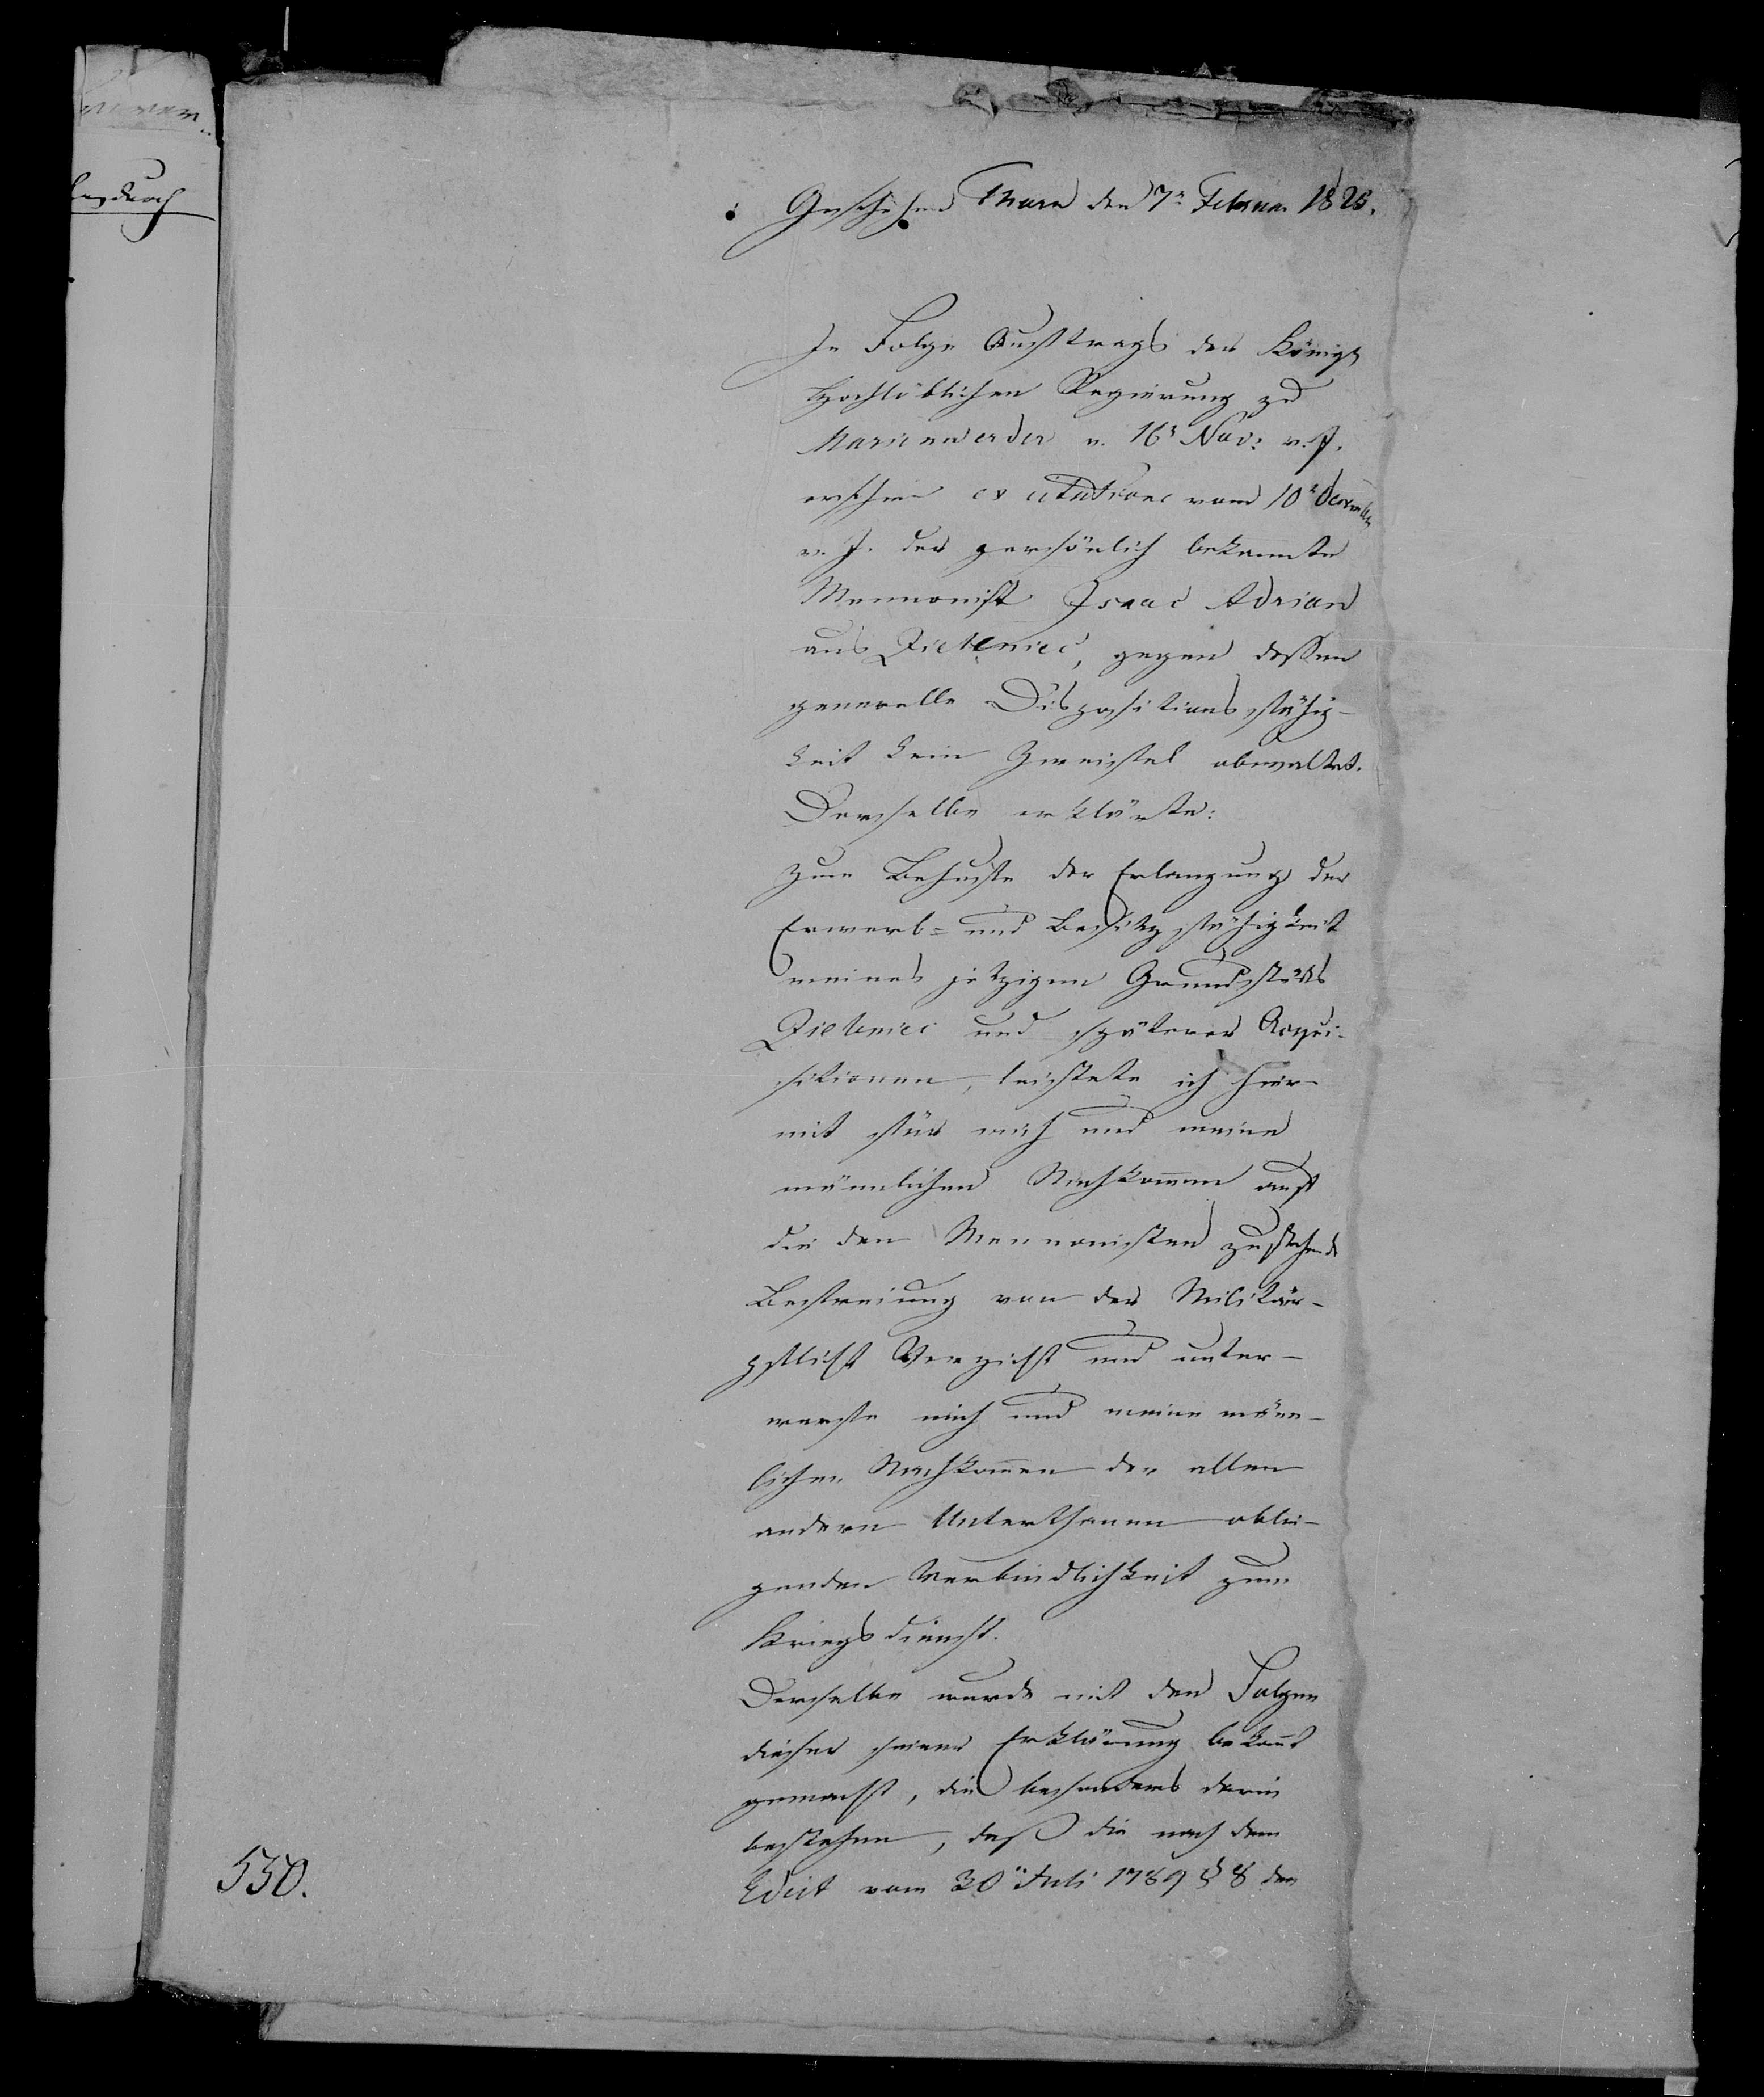 Geschehen Thorn den 7n Februar 1825.
In Folge Auftrags der Königl
Hochlöblichen Regierung zu
Marienwerder v. 16t Nov: v. J.
erschien ex citatione vom 10t December
v. J. der persönlich bekannte
Mennonist Isaac Adrian
aus Zieleniec, gegen dessen
generelle Dispositionsfähig-
keit kein Zweifel obwaltet.
Derselbe erklärte:
Zum Behufe der Erlangung der
Erwerb- und Besitzfähigkeit
meines jetzigen Grundstücks
Zieleniec und späterer Acqui-
sitionen, leistete ich hier-
mit für mich und meine
männlichen Nachkommen auf
die den Mennonisten zustehende
Befreiung von der Militär-
pflicht Verzicht und unter-
werfe mich und meine männ-
lichen Nachkommen der allen
andern Unterthanen oblie-
genden Verbindlichkeit zum
Kriegsdienst.
Derselbe wurde mit den Folgen
dieser seiner Erklärung bekannt
gemacht, die besonders darin
bestehen, daß die nach dem
Edict vom 30n Juli 1789 § 8 den
550.